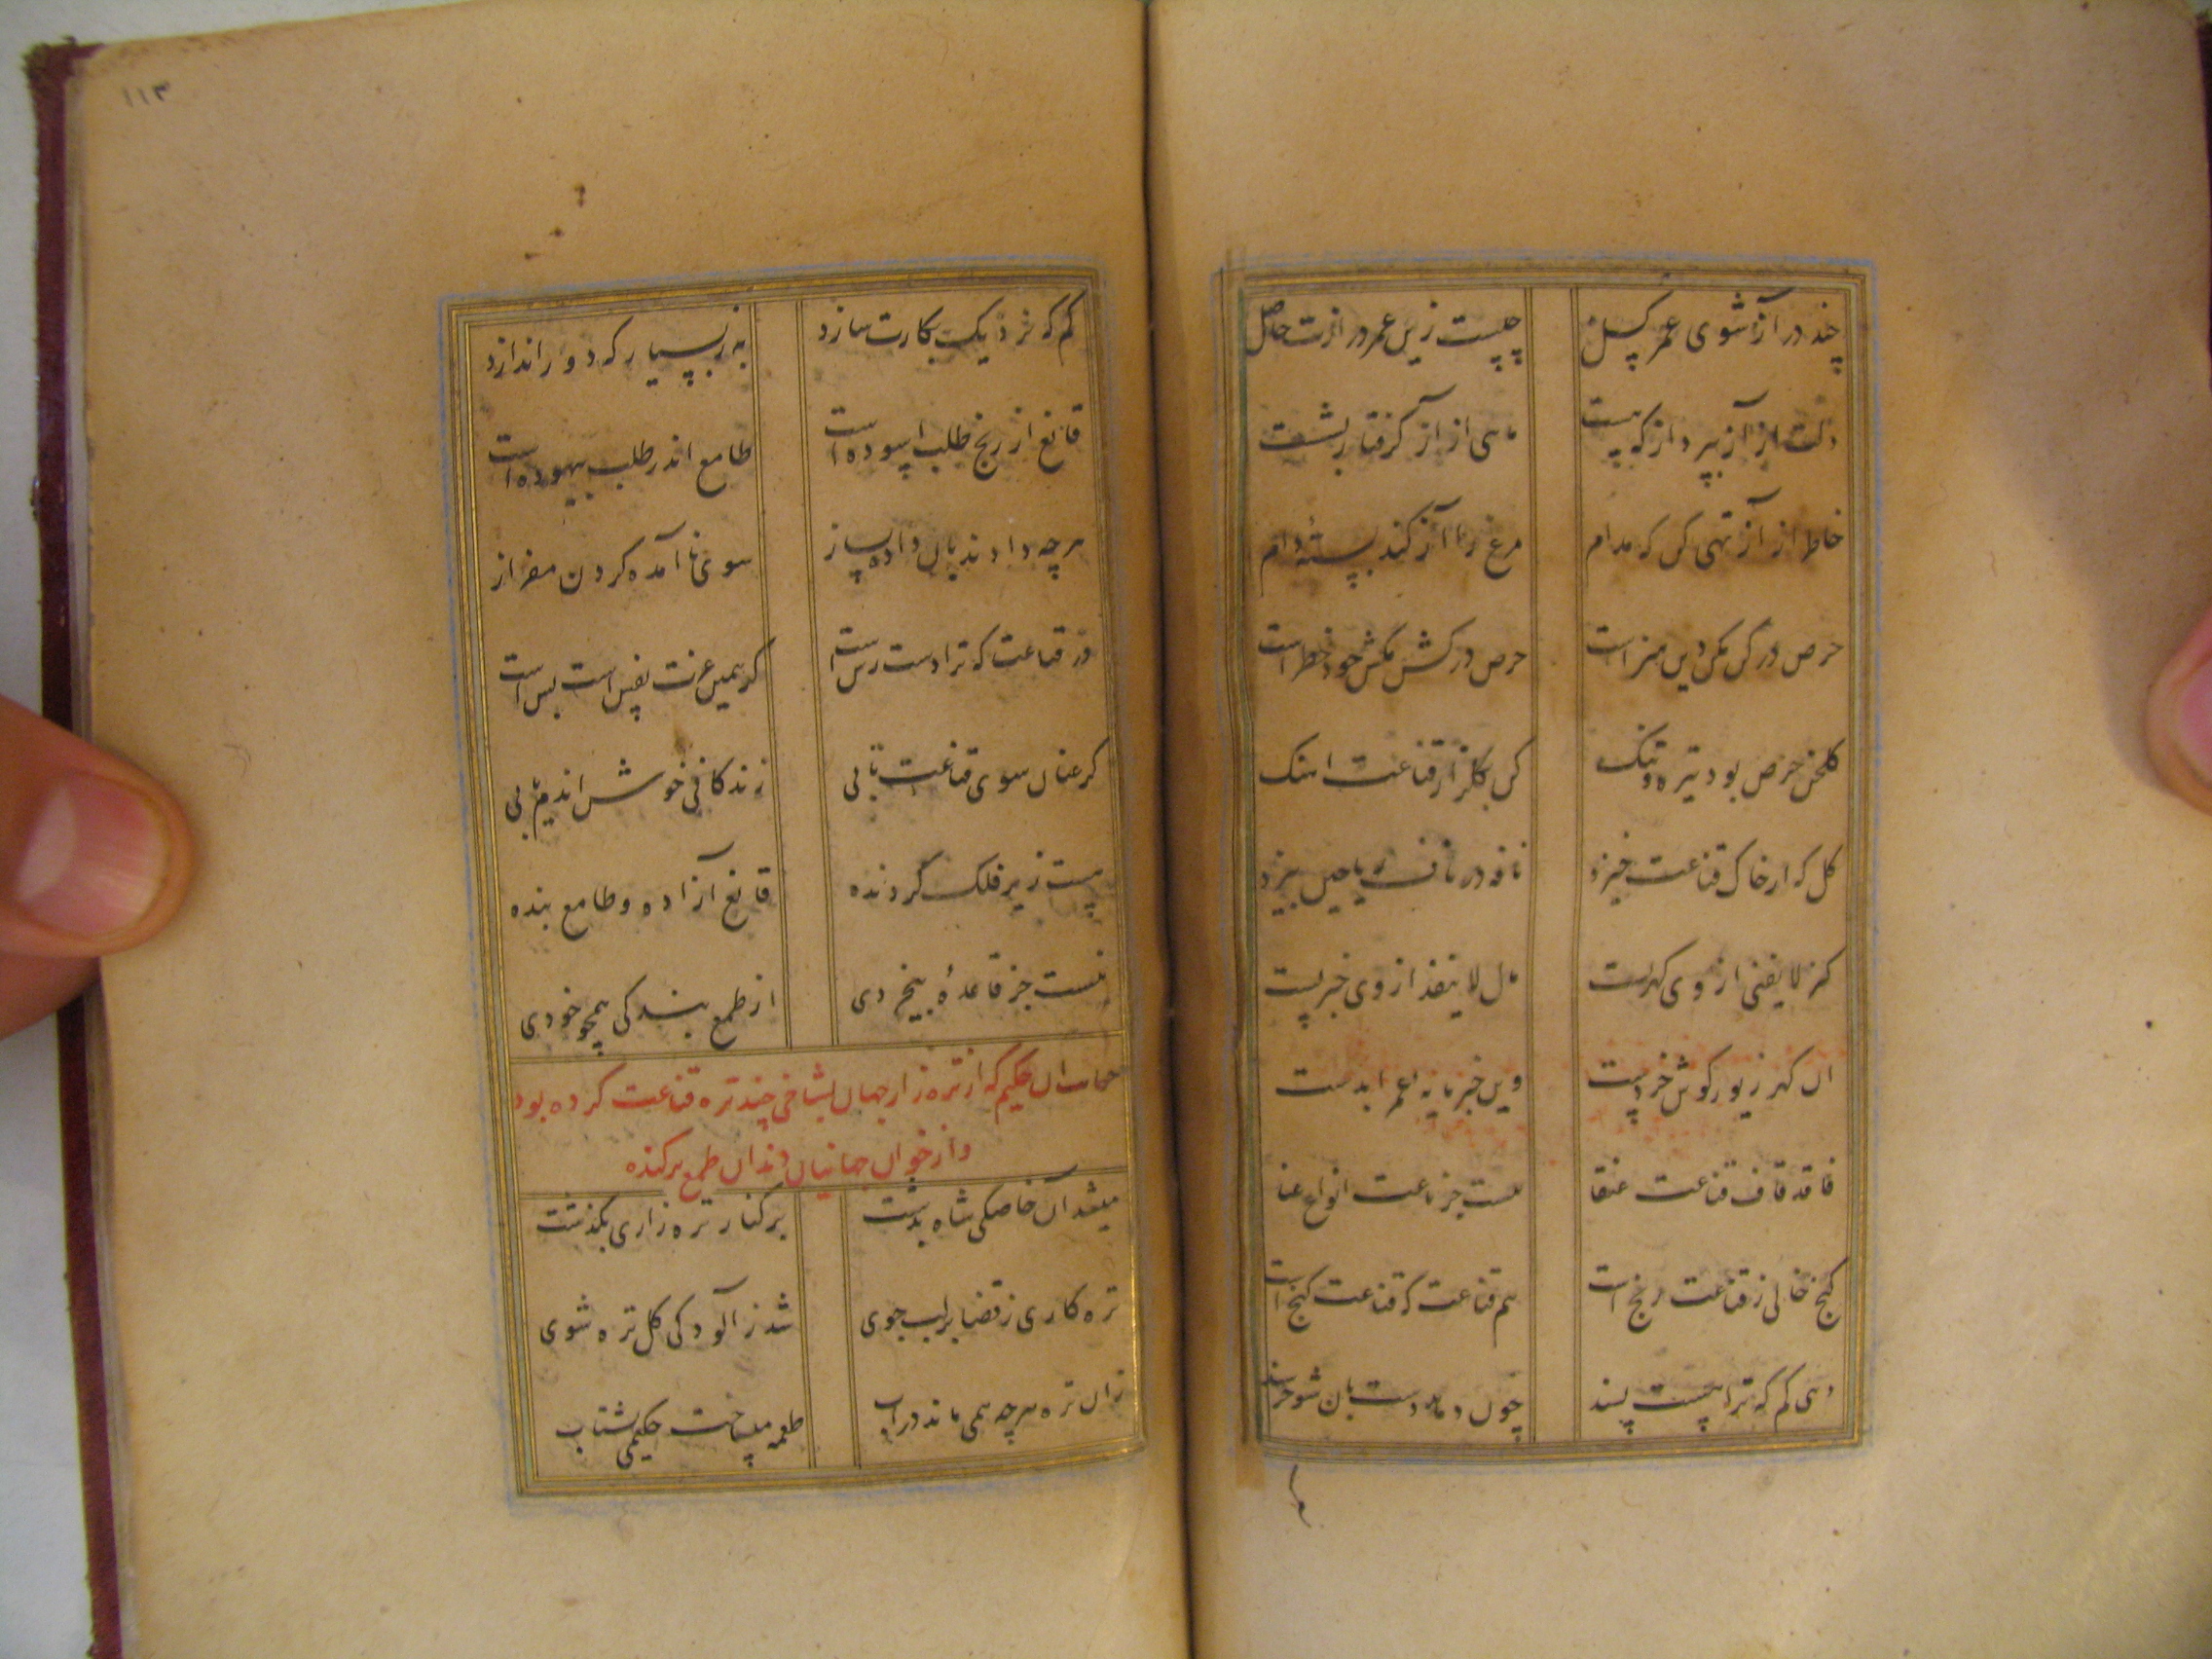 چند در آز شوی عمر گسل
چیست زین عمر درازت حاصل
دلت از آز بپرداز که هست
ماهی از آز گرفتار بشست
خاطر از آز تهی کن که مدام
مرغ را آز کند بستهٔ دام
حرص در کن مکن دین
حرص در کش مکش خود خطر است
گلخن حرص بود تیره و تنگ
کن بگلزار قناعت آهنگ
گل که از خاک قناعت خیزد
نافه در ناف ریاحین بیزد
کنز لا یفنی ازوی گهریست
مال لا ینفد ازوی خبریست
آن گهر زیور گوش خردست
وین خبر مایهٔ عمر ابدست
فاقه قاف قناعت عنقا
نیست جز انواع عنا
گنج خالی ز قناعت رنج است
هم قناعت که قناعت گنج است
دهی کم که ترا هست پسند
چون دهد دست بآن شو خرسند
۱۱۳
کم که نزدیک بکارت سازد
به ز بسیار که دور اندازد
قانع از رنج طلب آسوده است
طامع اندر طلب بیهوده است
هرچه دادند بآن داده بساز
سوی ناآمده گردن مفراز
در قناعت که ترا دست رس است
گر همین عزت نفس است بس است
گر عنان سوی قناعت تابی
زندگانی خوش اندر یابی
هست زیر فلک گردنده
قانع آزاده و طامع بنده
نیست جز قاعدهٔ بیخردی
از طمع بندگی همچو خودی
حکایت آن حکیم که از تره زار جهان بشاخی چند تره قناعت کرده بود
و از خوان جهانیان دندان طمع برکنده
میشد آن خاصگی شاه بدشت
بر کنار تره زاری بگذشت
تره کاری ز قضا بر لب جوی
شد ز آلودگی گل تره شوی
زان تره هرچه همی ماند در آب
طعمه میساخت حکیمی بشتاب